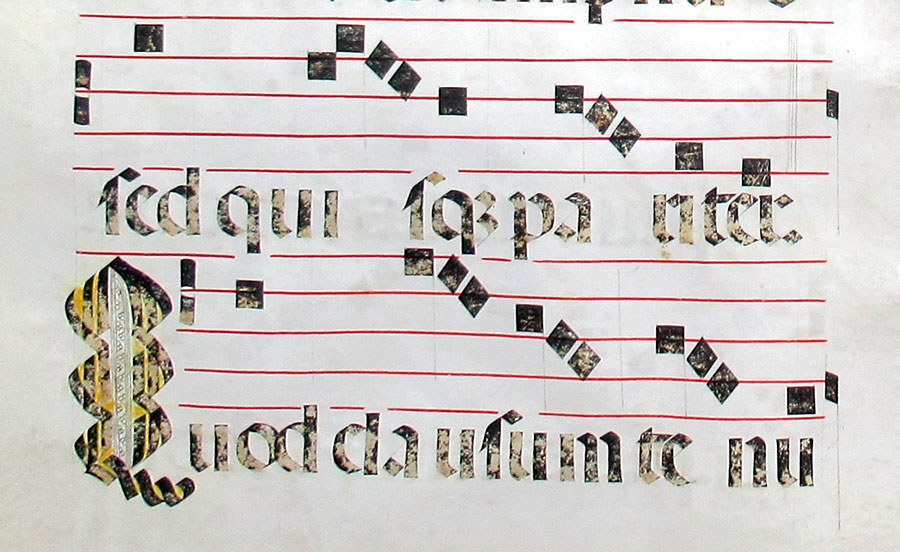 sed qui sqꝫ pa riter.
Quod cla usum te nu